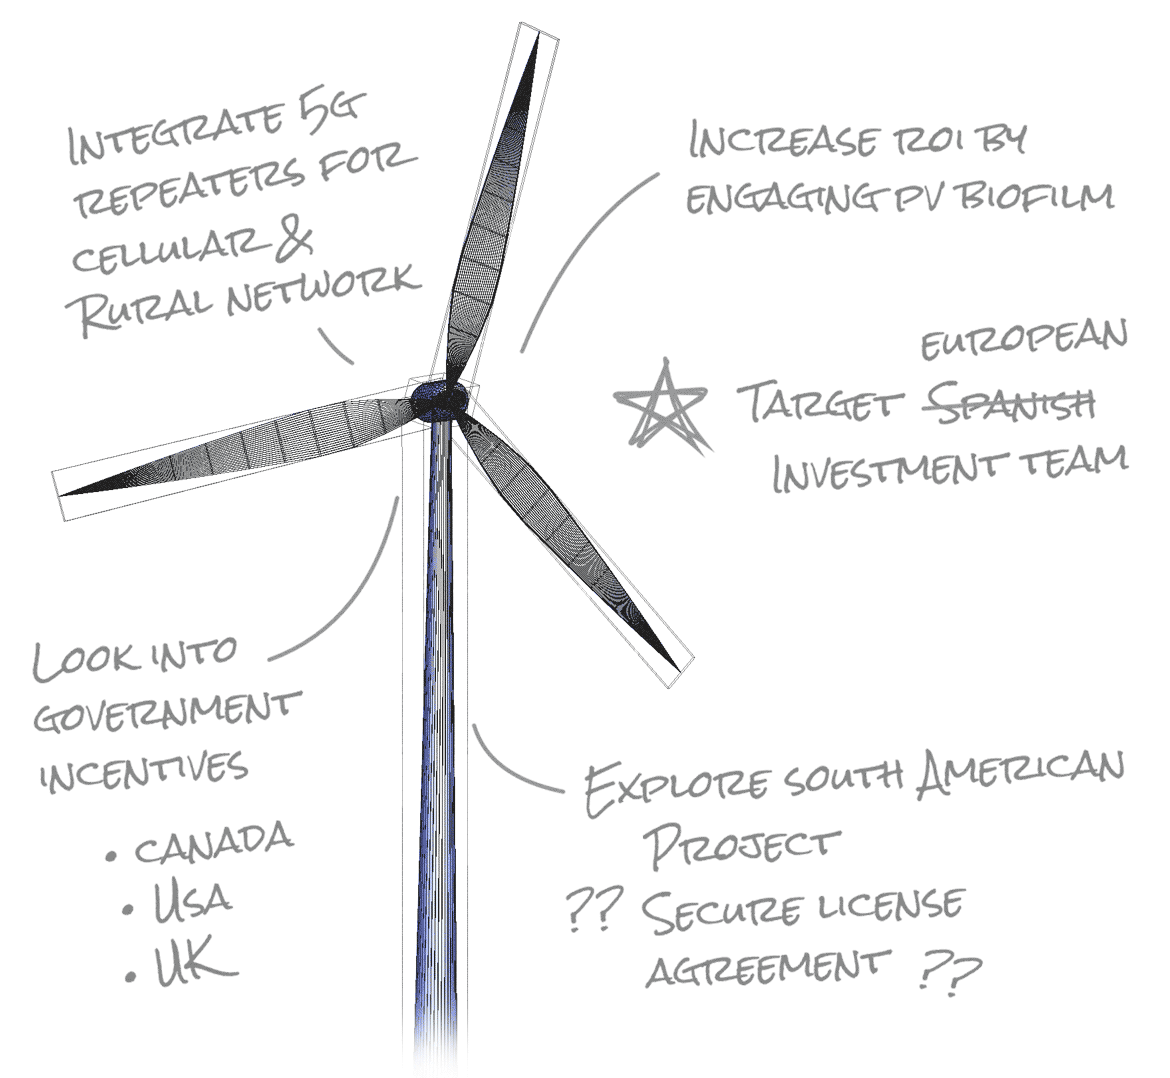 INTEGRATE 5G
REPEATERS FOR
CELLULAR &
RURAL NETWORK
INCREASE ROI BY
ENGAGING PV BIOFILM
EUROPEAN
TARGET SPANISH
INVESTMENT TEAM
LOOK INTO
GOVERNMENT
INCENTIVES
• CANADA
• USA
• UK
EXPLORE SOUTH AMERICAN
PROJECT
?? SECURE LICENSE
AGREEMENT ??